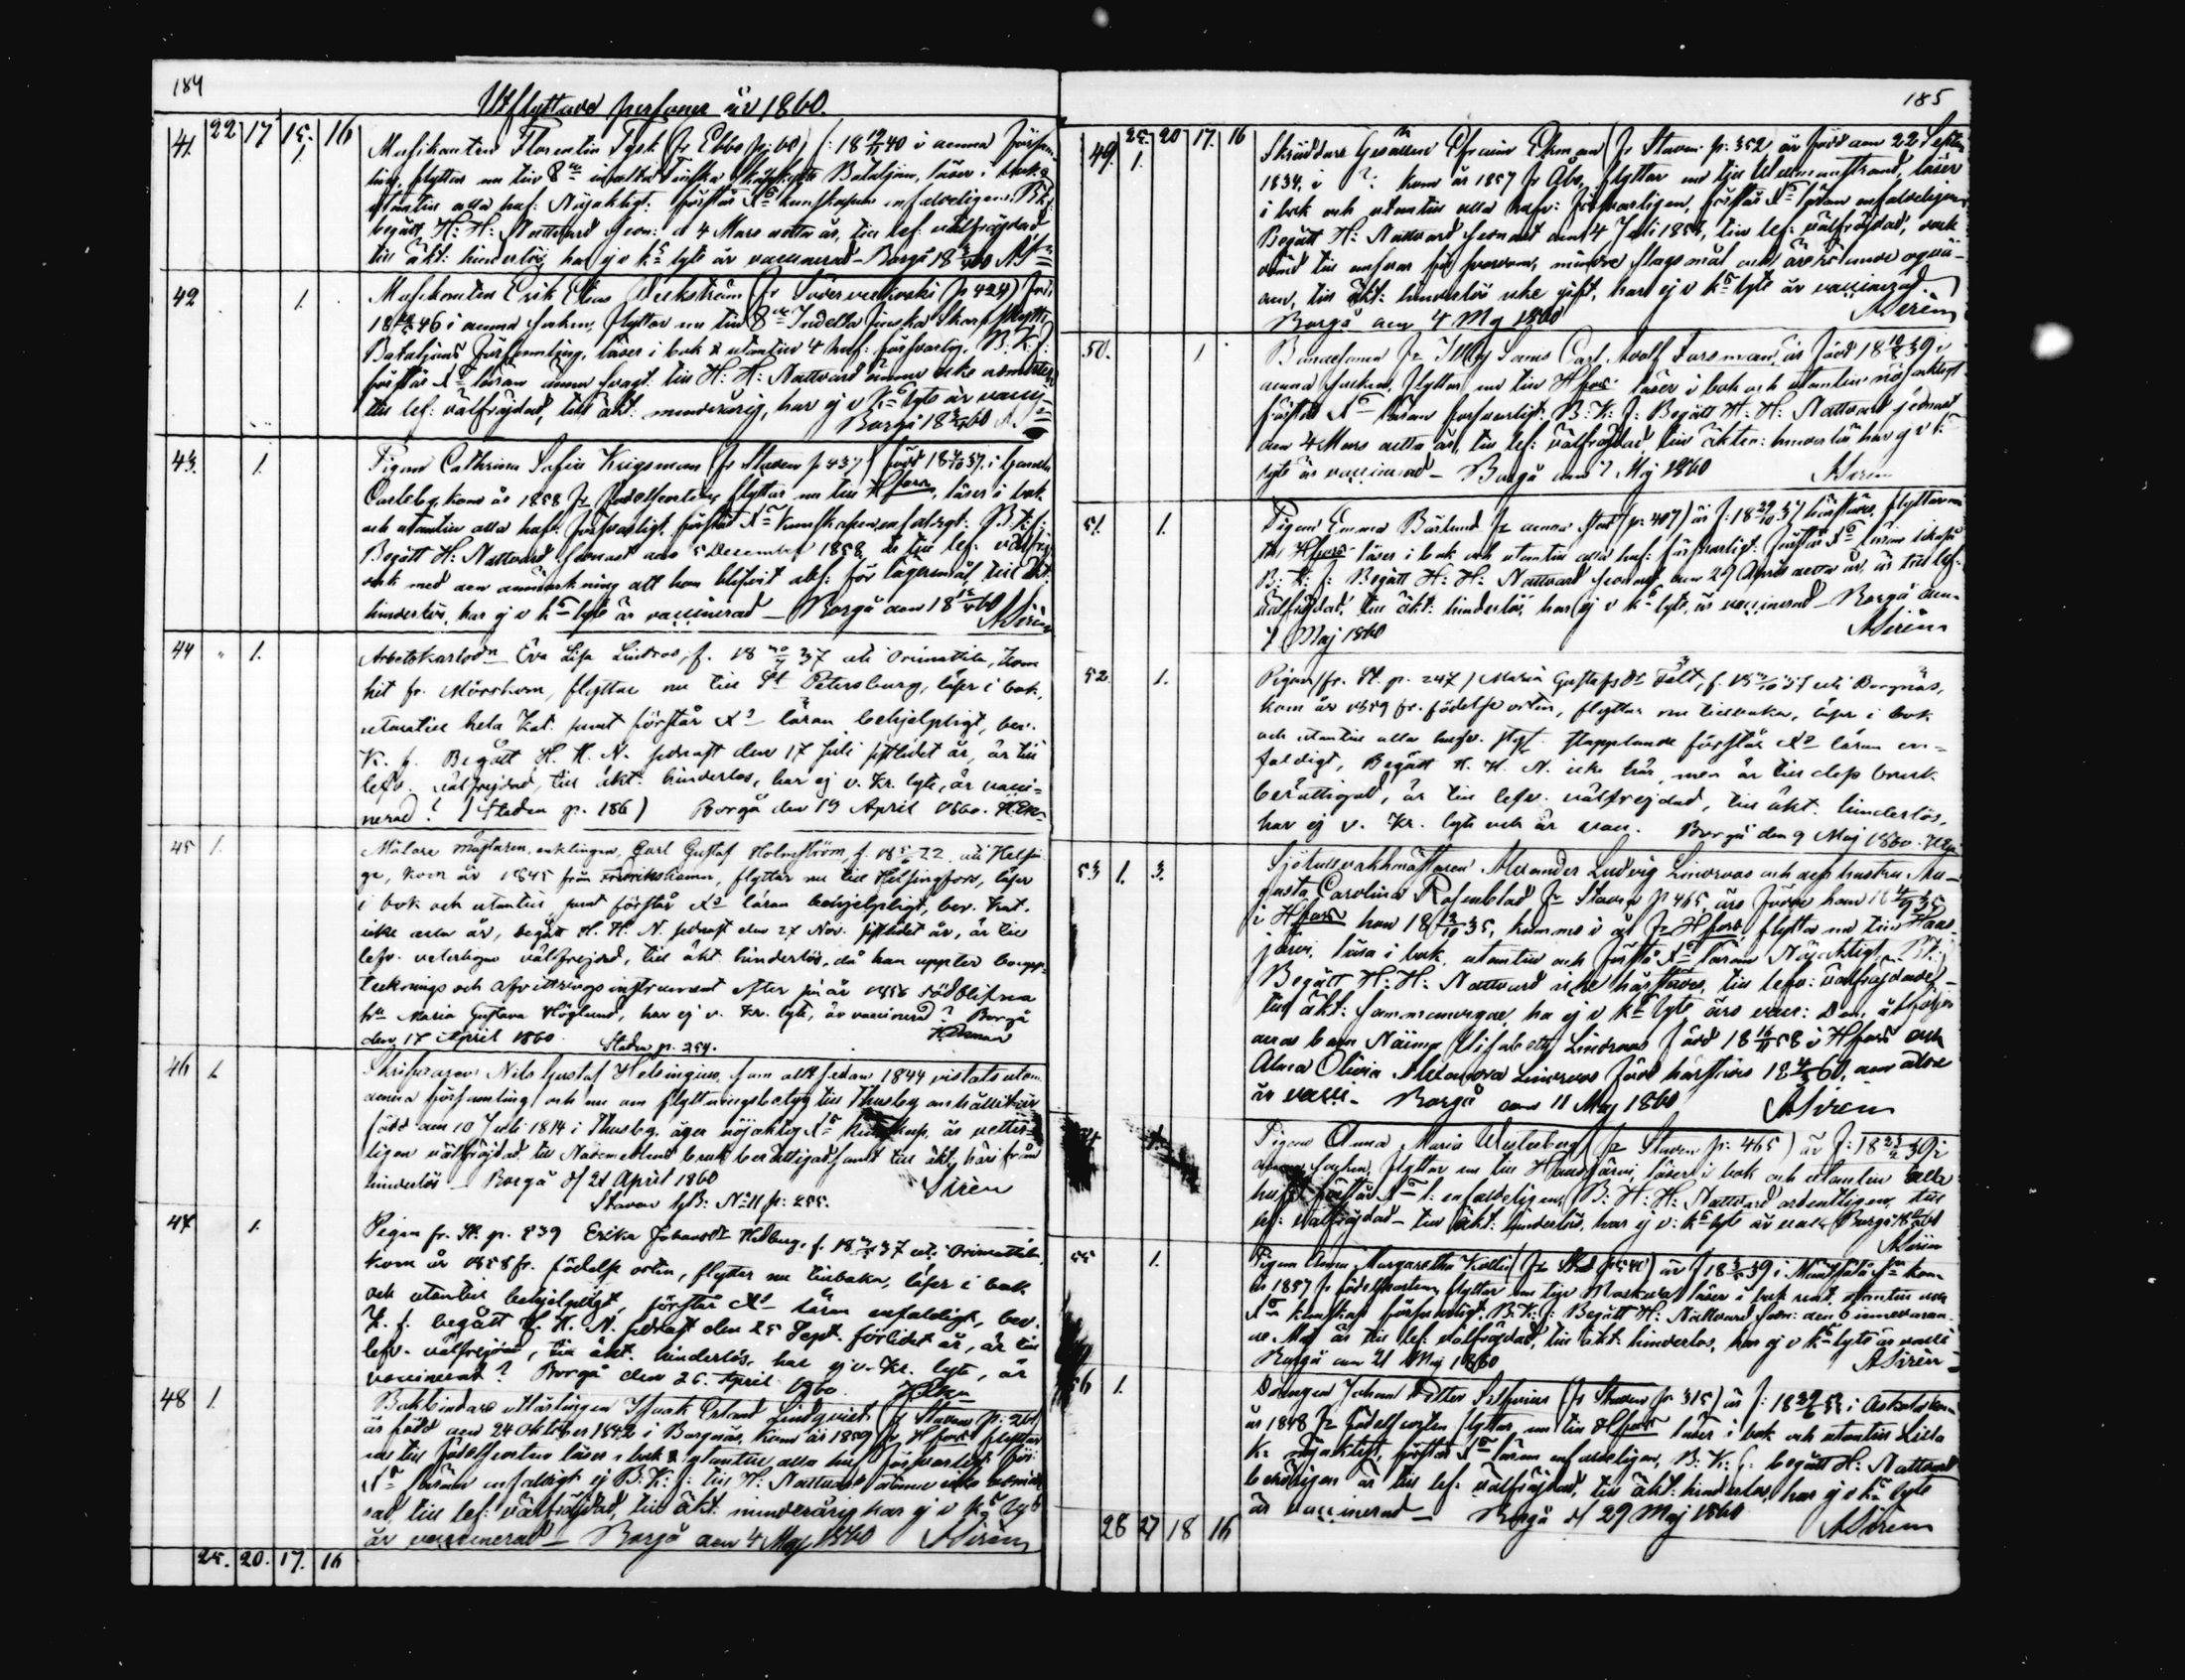 184
Utflyttade personer år 1860.
22 17 15. 16
41. 1
Musikanten Florentin Tysk (fr Ebbo p: 60) f: 18 40 i denna försam-
ling, flyttar nu till 8de indelta Finska Skarpskytte Bataljon, läser i bok o
utantill alla huf: Nöjaktigt. förstår Xs kunskapen enfaldeligen. B.K.f.
begått H: H: Nattvard senast d 4 Mars detta år, till lef: välfräjdad
till äkt: hinderlös, har ej v. ks lyte är vaccinerad – Borgå 18 60
42 1.
Musikanten Erik Elias Weckström (fr p 424) född
18 46 i denna socken, flyttar nu till 8de Indelta finska Skarpskytte
Bataljons församling, läser i bok & utantill 4 huf: försvarlig. B. K. f.
förstår Xs läran ännu svagt. till H: H: Nattvard ännu icke admitterad
till lef: välfräjdad, till äkt: minderårig, har ej v ks lyte är vacci-
Borgå 18 60
43. 1.
Pigan Cathrina Sofia Krigsman (fr Staden p 437) född 18 37. i Gamla
Carleby, kom år 1858 fr födelseorten, flyttar nu till Hfors, läser i bok
och utantill alla huf: försvarligt, förstår Xs kunskapen enfaldigt. B. K. f:
Begått H: Nattvard senast den 5 December 1858, är till lef: välfräj-
dad med den anmärkning att hon blifvit abs: för lägersmål, till äkt:
hinderlös, har ej v ks lyte är vaccinerad – Borgå den 18 60 A Sirén
44 „ 1.
Arbetskarlsdn Eva Lisa Lindros, f. 18 37 uti Orimattila, kom
hit fr. Mörskom, flyttar nu till St Petersburg, läser i bok,
utantill hela Kat. samt förstår Xs läran behjelpligt, bev.
K. f. Begått H. H. N. sednast den 17 Juli sistlidet år, är till
lefv. välfrejdad, till äkt. hinderlös, har ej v. Kr. lyte, är vacci-
nerad? (Staden p. 186) Borgå den 19 April 1860.
45 1.
Målare mästaren, enklingen, Carl Gustaf Holmström, f. 18 22 uti Helsin-
ge, kom år 1845 från Fredrikshamn, flyttar nu till Helsingfors, läser
i bok och utantill samt förstår Xs läran behjelpligt, bev. Kat.
icke alla år, begått H. H. N. sednast den 27 Nov. sistlidet år, är till
lefv. veterligen välfrejdad, till äkt hinderlös, då han uppter boupp-
tecknings och afvittrings instrument efter sin år 1856 död blifna
hu Maria Gustava Höglund, har ej v. Kr. lyte, är vaccinerad? Borgå
den 17 April 1860. Staden p. 254.
46 1.
Skrifvaren Nils Gustaf Helsingius, som allt sedan 1844 vistats utom
denna församling och nu om flyttningsbetyg till Thusby anhållit är
född den 10 Juli 1814 i Thusby, äger nöjaktig Xs kunskap, är vetter-
ligen välfräjdad till Nådemedlens bruk berättigad samt till äkt: härifrån
hinderlös – Borgå d 21 April 1860 Sirén
Staden KB: No II p: 255.
47 1.
Pigan fr. St. p. 239 Erika Johansdr Hedberg, f. 18 37 uti Orimattila,
kom år 1858 fr. födelse orten, flyttar nu tillbaka, läser i bok
och utantill behjelpligt, förstår Xs läran enfaldigt, bev.
K. f. begått H. H. N. sednast den 25 Sept. förlidet år, är till
lefv. välfrejdad, till äkt. hinderlös, har ej v. Kr. lyte, är
vaccinerad? Borgå den 26. April 1860.
48 1.
Bokbindare utlärlingen Isaak Erland Lindqvist (fr Staden p: 261)
är född den 24 oktober 1842 i Borgnäs, kom år 1859 fr Hfors flyttar
nu till födelseorten läser i bok & utantill alla huf försvarligt för:
Xs läran enfaldigt ej B: K: f: till H: Nattvard ännu icke admitte-
rad, till lef: välfräjdad, till äkt. minderårig har ej v ks lyte
är vaccinerad – Borgå den 4 Maj 1860 A Sirén
25. 20. 17. 16
185
25. 20 17. 16
49. 1.
Skräddare Gesällen Efraim Ekman (fr Staden p: 352 är född den 22 Septem
1834, i ?: kom år 1857 fr Åbo, flyttar nu till Willmanstrand, läser
i bok och utantill alla hufv: försvarligen, förstår Xs läran enfaldeligen
Begått H: Nattvard senast den 4 Juli 1858, till lef: välfräjdad,
till äkt: hinderlös icke gift, har ej v ks lyte är vaccinerad
Borgå den 4 Maj 1860 A Sirén
50. 1
Carl Adolf Forsman är född 18 39 i
denna socken, flyttar nu till Hfors läser i bok och utantill nöjaktigt
förstår Xs läran försvarligt. B. K. f: Begått H: H: Nattvard senast
den 4 Mars detta år, till lef: välfräjdad, till äkten: hinderlös har ej v k
lyte är vaccinerad – Borgå den 7 Maj 1860 A Sirén
51. 1.
Pigan Emma Bärlund fr denna stad (p: 407) är f: 18 37 härstädes, flyttar nu
till Hfors läser i bok och utantill alla huf: försvarligt. förstår Xs läran
B: K: f: Begått H: H: Nattvard senast den 29 April detta år, är till lef:
välfräjdad, till äkt: hinderlös, har ej v ks lyte, är vaccinerad – Borgå den
7 Maj 1860 A Sirén
52. 1.
Pigan (fr. St. p. 247) Maria Gustafsdr Fält, f. 18 37 uti Borgnäs,
kom år 1859 fr. födelse orten, flyttar nu tillbaka, läser i bok
och utantill alla hufv. styk. stapplande förstår Xs läran en-
faldigt, Begått H. H. N. icke här, men är till dess bruk
berättigad, är till lefv. välfrejdad, till äkt. hinderlös,
har ej v. Kr. lyte och är vacc. Borgå den 9 Maj 1860.
53 1. 3.
Sjötullvakhmästaren Alexander Ludvig Lindroos och dess hustru Au-
gusta Carolina Rosenblad fr Staden p 465 äro födde han 18 35
i Hfors hon 18 35, kommo i år fr Hfors, flytta nu till Haus-
järvi, läsa i bok, utantill och förstå Xs läran Nöjaktigt
Begått H: H: Nattvard icke härstädes, till lefv: välfräjdade,
till äkt: sammanvigde, ha ej v ks lyte äro vacc: Dem åtfölja
deras barn Naimi Elisabeth Lindroos född 18 58 i Hfors och
Alma Olivia Alexandra Lindroos född härstädes 18 60, den äldre
är vacci- Borgå den 11 Maj 1860 A Sirén
54. 1.
Pigan Anna Maria Westerberg (fr Staden p: 465) är f: 18 39 i
denna socken, flyttar nu till Hausjärvi, läser i bok och utantill alla
huf: förstår Xs l: enfaldeligen, B: H: H: Nattvard ordentligen, till
lef: välfräjdad – till äkt: hinderlös, har ej v: ks lyte är vacc Borgå
A Sirén
55 1.
Pigan Anna Margaretha (fr Stad p: 540) är f 18 39 i Mäntsälä Sn kom
år 1857 fr födelseorten, flyttar nu till läser i bok utantill
Xs kunskap försvarligt. B: K: f: Begått H: Nattvard sedn: den 6 innevaran-
de Maj är till lef: välfräjdad, till äkt: hinderlös, har ej v ks lyte är vacci
Borgå den 21 Maj 1860 A Sirén
56 1.
Drängen Johan Petter Silfverius (fr Staden p: 315) är f: 18 33 i Askola kom
år 1848 fr födelseorten flyttar nu till Hfors läser i bok och utantill Lilla
K: nöjaktigt, förstår Xs läran enfaldeligen, B. K: f: begått H: Nattvard
behörigen är till lef: välfräjdad, till äkt: hinderlös, har ej v ks lyte
är vaccinerad – Borgå d 29 Maj 1860 A Sirén
28 27 18 16